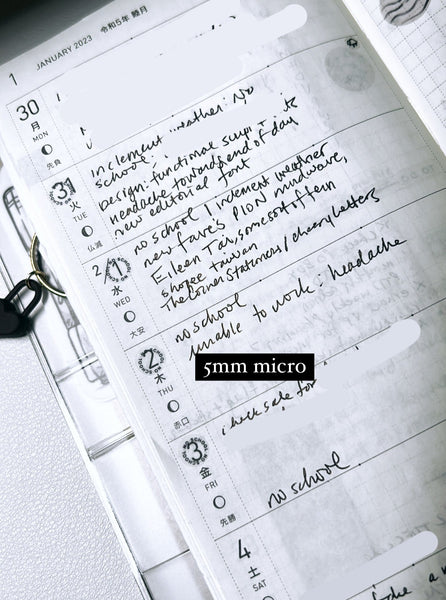 1 JANUARY 2023 令和5年 睦月
30
月
MON
先負
inclement weather: No
school;
31
火
TUE
仏滅
Design: functional
Headache towards end of day
new editorial font
2/1
水
WED
大安
no school / inclement weather
new faves PION mudwave,
Eileen Tai, some sort of fern
shopee taiwan
The Corner Statements / cheery letters
2
木
THU
赤口
no school
unable to work: headache
5mm micro
check sale for
3
金
FRI
先勝
no school
4
土
SAT